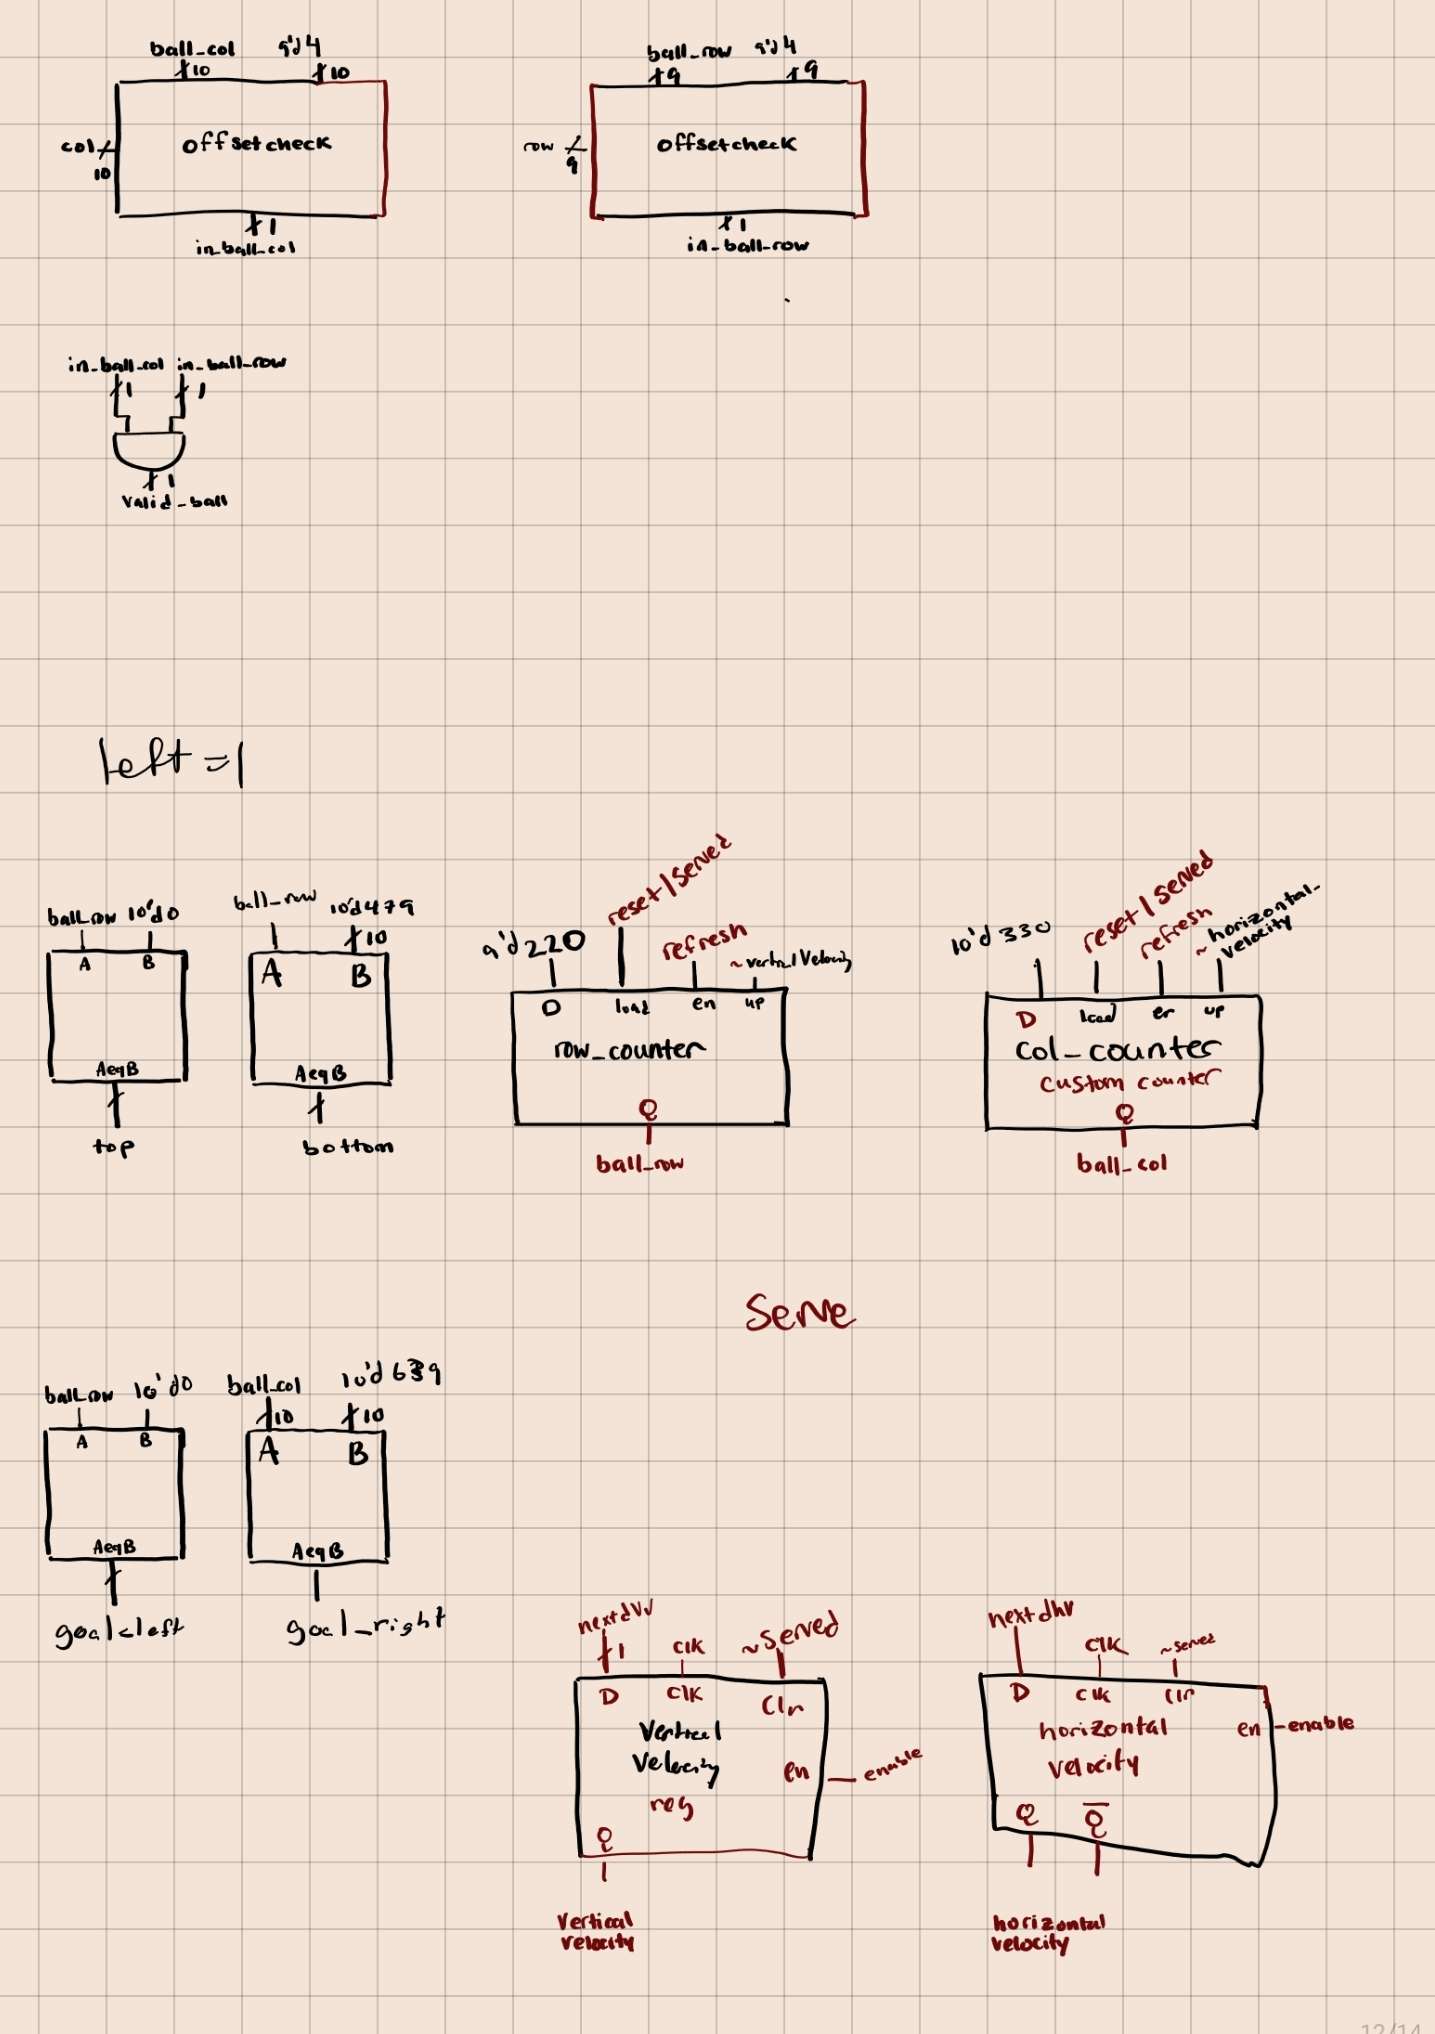 ball_col 9'd4
10 10
col offsetcheck
10
1
in_ball_col
ball_row 9'd4
9 9
row offsetcheck
9
1
in_ball_row
in_ball_col in_ball_row
1 1
1
valid_ball
left = 1
ball_row 10'd0
A B
AeqB
top
ball_row 10'd479
10
A B
AeqB
bottom
9'd220 reset/served refresh ~vertical Velocity
D load en up
row_counter
Q
ball_row
10'd 330 reset/served refresh ~horizontal_
velocity
D load en up
col_counter
custom counter
Q
ball_col
Serve
ball_row 10'd0
A B
AeqB
goal_left
ball_col 10'd639
10 10
A B
AeqB
goal_right
nextdVV clk ~served
1
D clk Clr
Vertical
Velocity
reg
en enable
Q
Vertical
velocity
nextdhV clk ~served
D clk Clr
horizontal
velocity
en enable
Q Q̅
horizontal
velocity
12/14